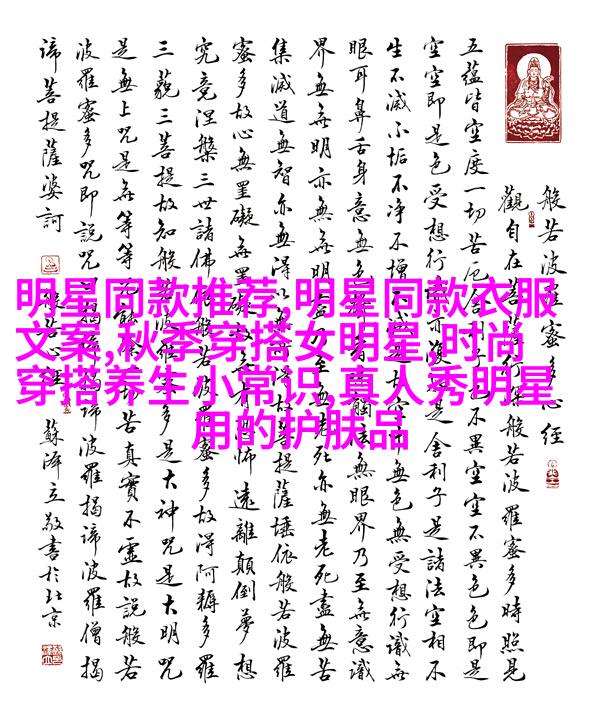 般若波羅蜜多心經
觀自在菩薩行深般若波羅蜜多時照見
五蘊皆空度一切苦厄舍利子色不異空空不異色色即是
空空即是色受想行識亦復如是舍利子是諸法空相不
生不滅不垢不净不增不減是故空中無色無受想行識無
眼耳鼻舌身意無色聲香味觸法無眼界乃至無意識
界無無明亦無無明盡乃至無老死亦無老死盡無苦
集滅道無智亦無得以無所得故菩提薩埵依般若波羅
蜜多故心無罣礙無罣礙故無有恐怖遠離顛倒夢想
究竟涅槃三世諸佛依般若波羅蜜多故得阿耨多羅
三藐三菩提故知般若波羅蜜多是大神咒是大明咒
是無上咒是無等等咒能除一切苦真實不虛故說般若
波羅蜜多咒即說咒曰揭諦揭諦波羅揭諦波羅僧揭
諦菩提薩婆訶
般若心經 蘇澤立敬書於北京
明星同款推荐,明星同款衣服
文案,秋季穿搭女明星,时尚
穿搭养生小常识,真人秀明星
用的护肤品